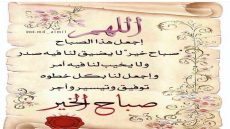 اللهم
إجعل هذا الصباح
"صباح خير" لا يضيق لنا فيه صدر
ولا يخيب لنا فيه أمر
وإجعل لنا بكل خطوه
توفيق وتيسير وأجر
صباح الخير